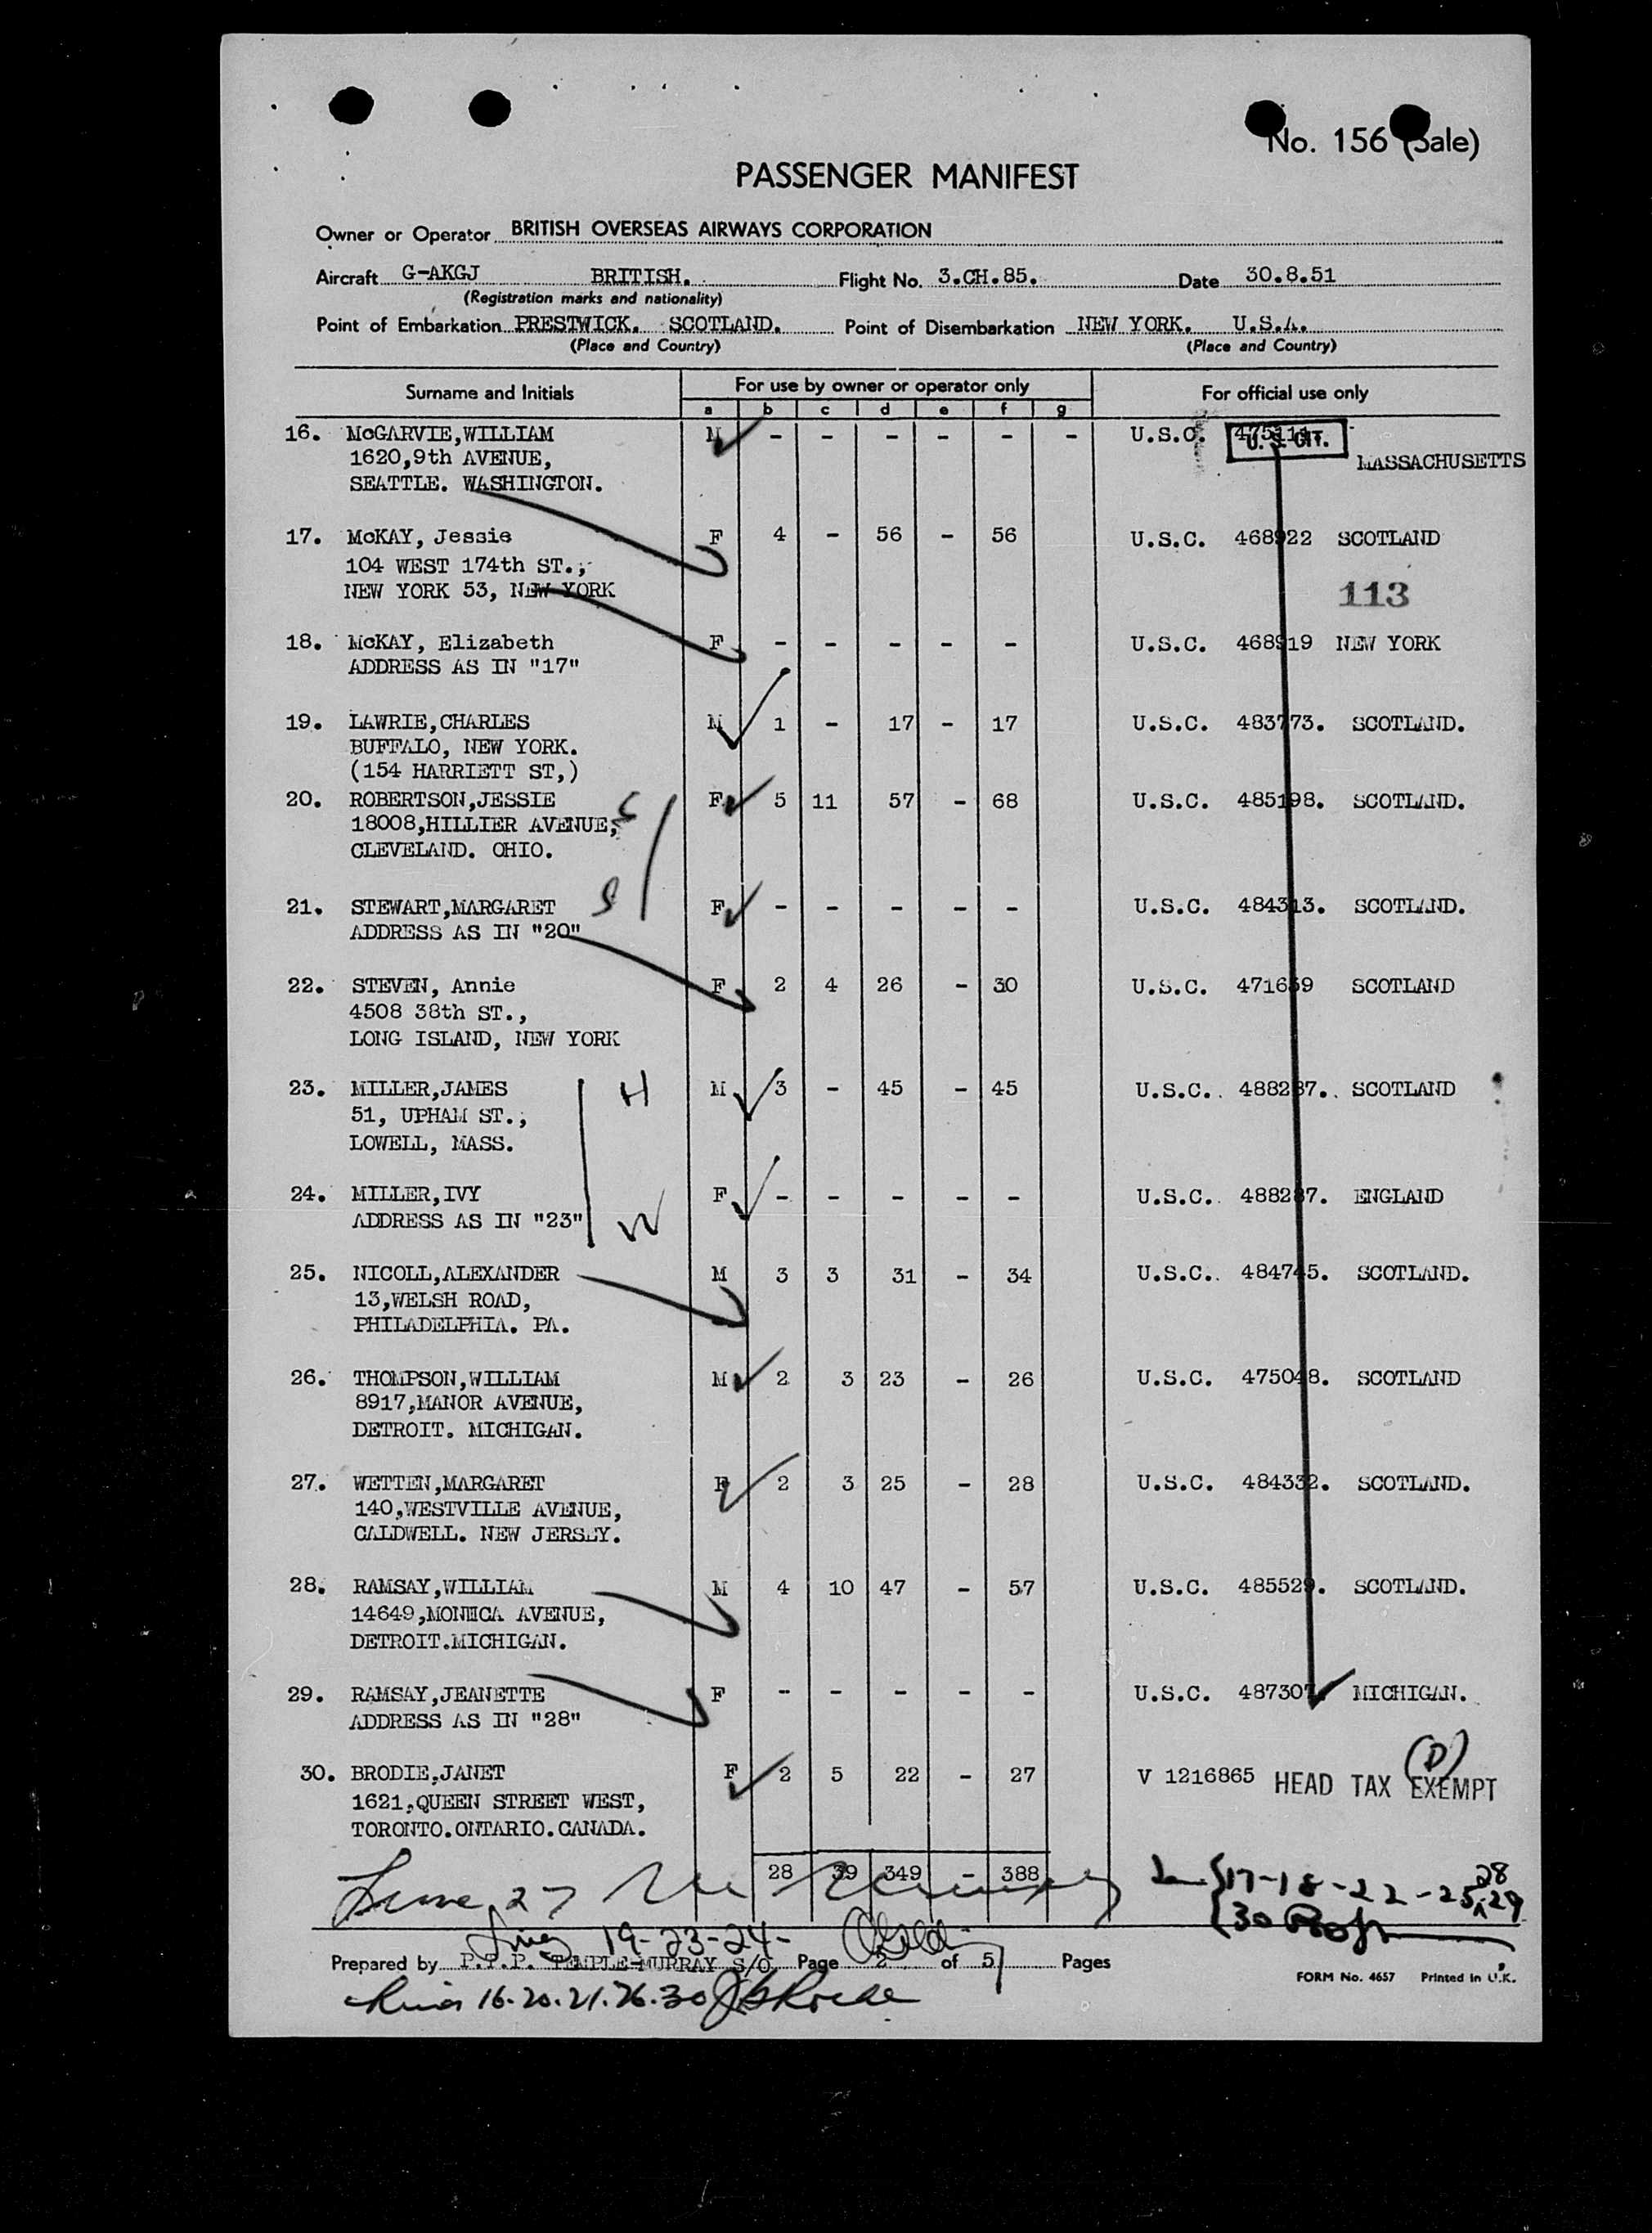 No. 156 (Sale)
PASSENGER MANIFEST
Owner or Operator BRITISH OVERSEAS AIRWAYS CORPORATION
Aircraft G-AKGJ BRITISH. Flight No. 3.CH.85. Date 30.8.51
(Registration marks and nationality)
Point of Embarkation PRESTWICK. SCOTLAND. Point of Disembarkation NEW YORK. U.S.A.
(Place and Country) (Place and Country)
Surname and Initials For use by owner or operator only For official use only
a b c d e f g
16. McGARVIE,WILLIAM M - - - - - - U.S.C. U.S. CIT.
1620,9th AVENUE, MASSACHUSETTS
SEATTLE. WASHINGTON.
17. McKAY, Jessie F 4 - 56 - 56 U.S.C. 468922 SCOTLAND
104 WEST 174th ST.,
NEW YORK 53, NEW YORK 113
18. McKAY, Elizabeth F - - - - - U.S.C. 468919 NEW YORK
ADDRESS AS IN "17"
19. LAWRIE,CHARLES M 1 - 17 - 17 U.S.C. 483773. SCOTLAND.
BUFFALO, NEW YORK.
(154 HARRIETT ST,)
20. ROBERTSON,JESSIE F 5 11 57 - 68 U.S.C. 485198. SCOTLAND.
18008,HILLIER AVENUE, S
CLEVELAND. OHIO.
21. STEWART,MARGARET S F - - - - - U.S.C. 484313. SCOTLAND.
ADDRESS AS IN "20"
22. STEVEN, Annie F 2 4 26 - 30 U.S.C. 471659 SCOTLAND
4508 38th ST.,
LONG ISLAND, NEW YORK
23. MILLER,JAMES H M 3 - 45 - 45 U.S.C. 488287. SCOTLAND
51, UPHAM ST.,
LOWELL, MASS.
24. MILLER,IVY F - - - - - U.S.C. 488287. ENGLAND
ADDRESS AS IN "23" W
25. NICOLL,ALEXANDER M 3 3 31 - 34 U.S.C. 484745. SCOTLAND.
13,WELSH ROAD,
PHILADELPHIA. PA.
26. THOMPSON,WILLIAM M 2 3 23 - 26 U.S.C. 475048. SCOTLAND
8917,MANOR AVENUE,
DETROIT. MICHIGAN.
27. WETTEN,MARGARET F 2 3 25 - 28 U.S.C. 484332. SCOTLAND.
140,WESTVILLE AVENUE,
CALDWELL. NEW JERSEY.
28. RAMSAY,WILLIAM M 4 10 47 - 57 U.S.C. 485529. SCOTLAND.
14649,MONICA AVENUE,
DETROIT.MICHIGAN.
29. RAMSAY,JEANETTE F - - - - - U.S.C. 487307. MICHIGAN.
ADDRESS AS IN "28"
30. BRODIE,JANET F 2 5 22 - 27 V 1216865 HEAD TAX EXEMPT (D)
1621,QUEEN STREET WEST,
TORONTO.ONTARIO.CANADA.
28 39 349 - 388
27 17-18-22-25-28-29
30
19-23-24-
Prepared by P.T.P. TEMPLE-MURRAY S/O. Page 2 of 5 Pages
FORM No. 4657 Printed in U.K.
16.20.21.26.30